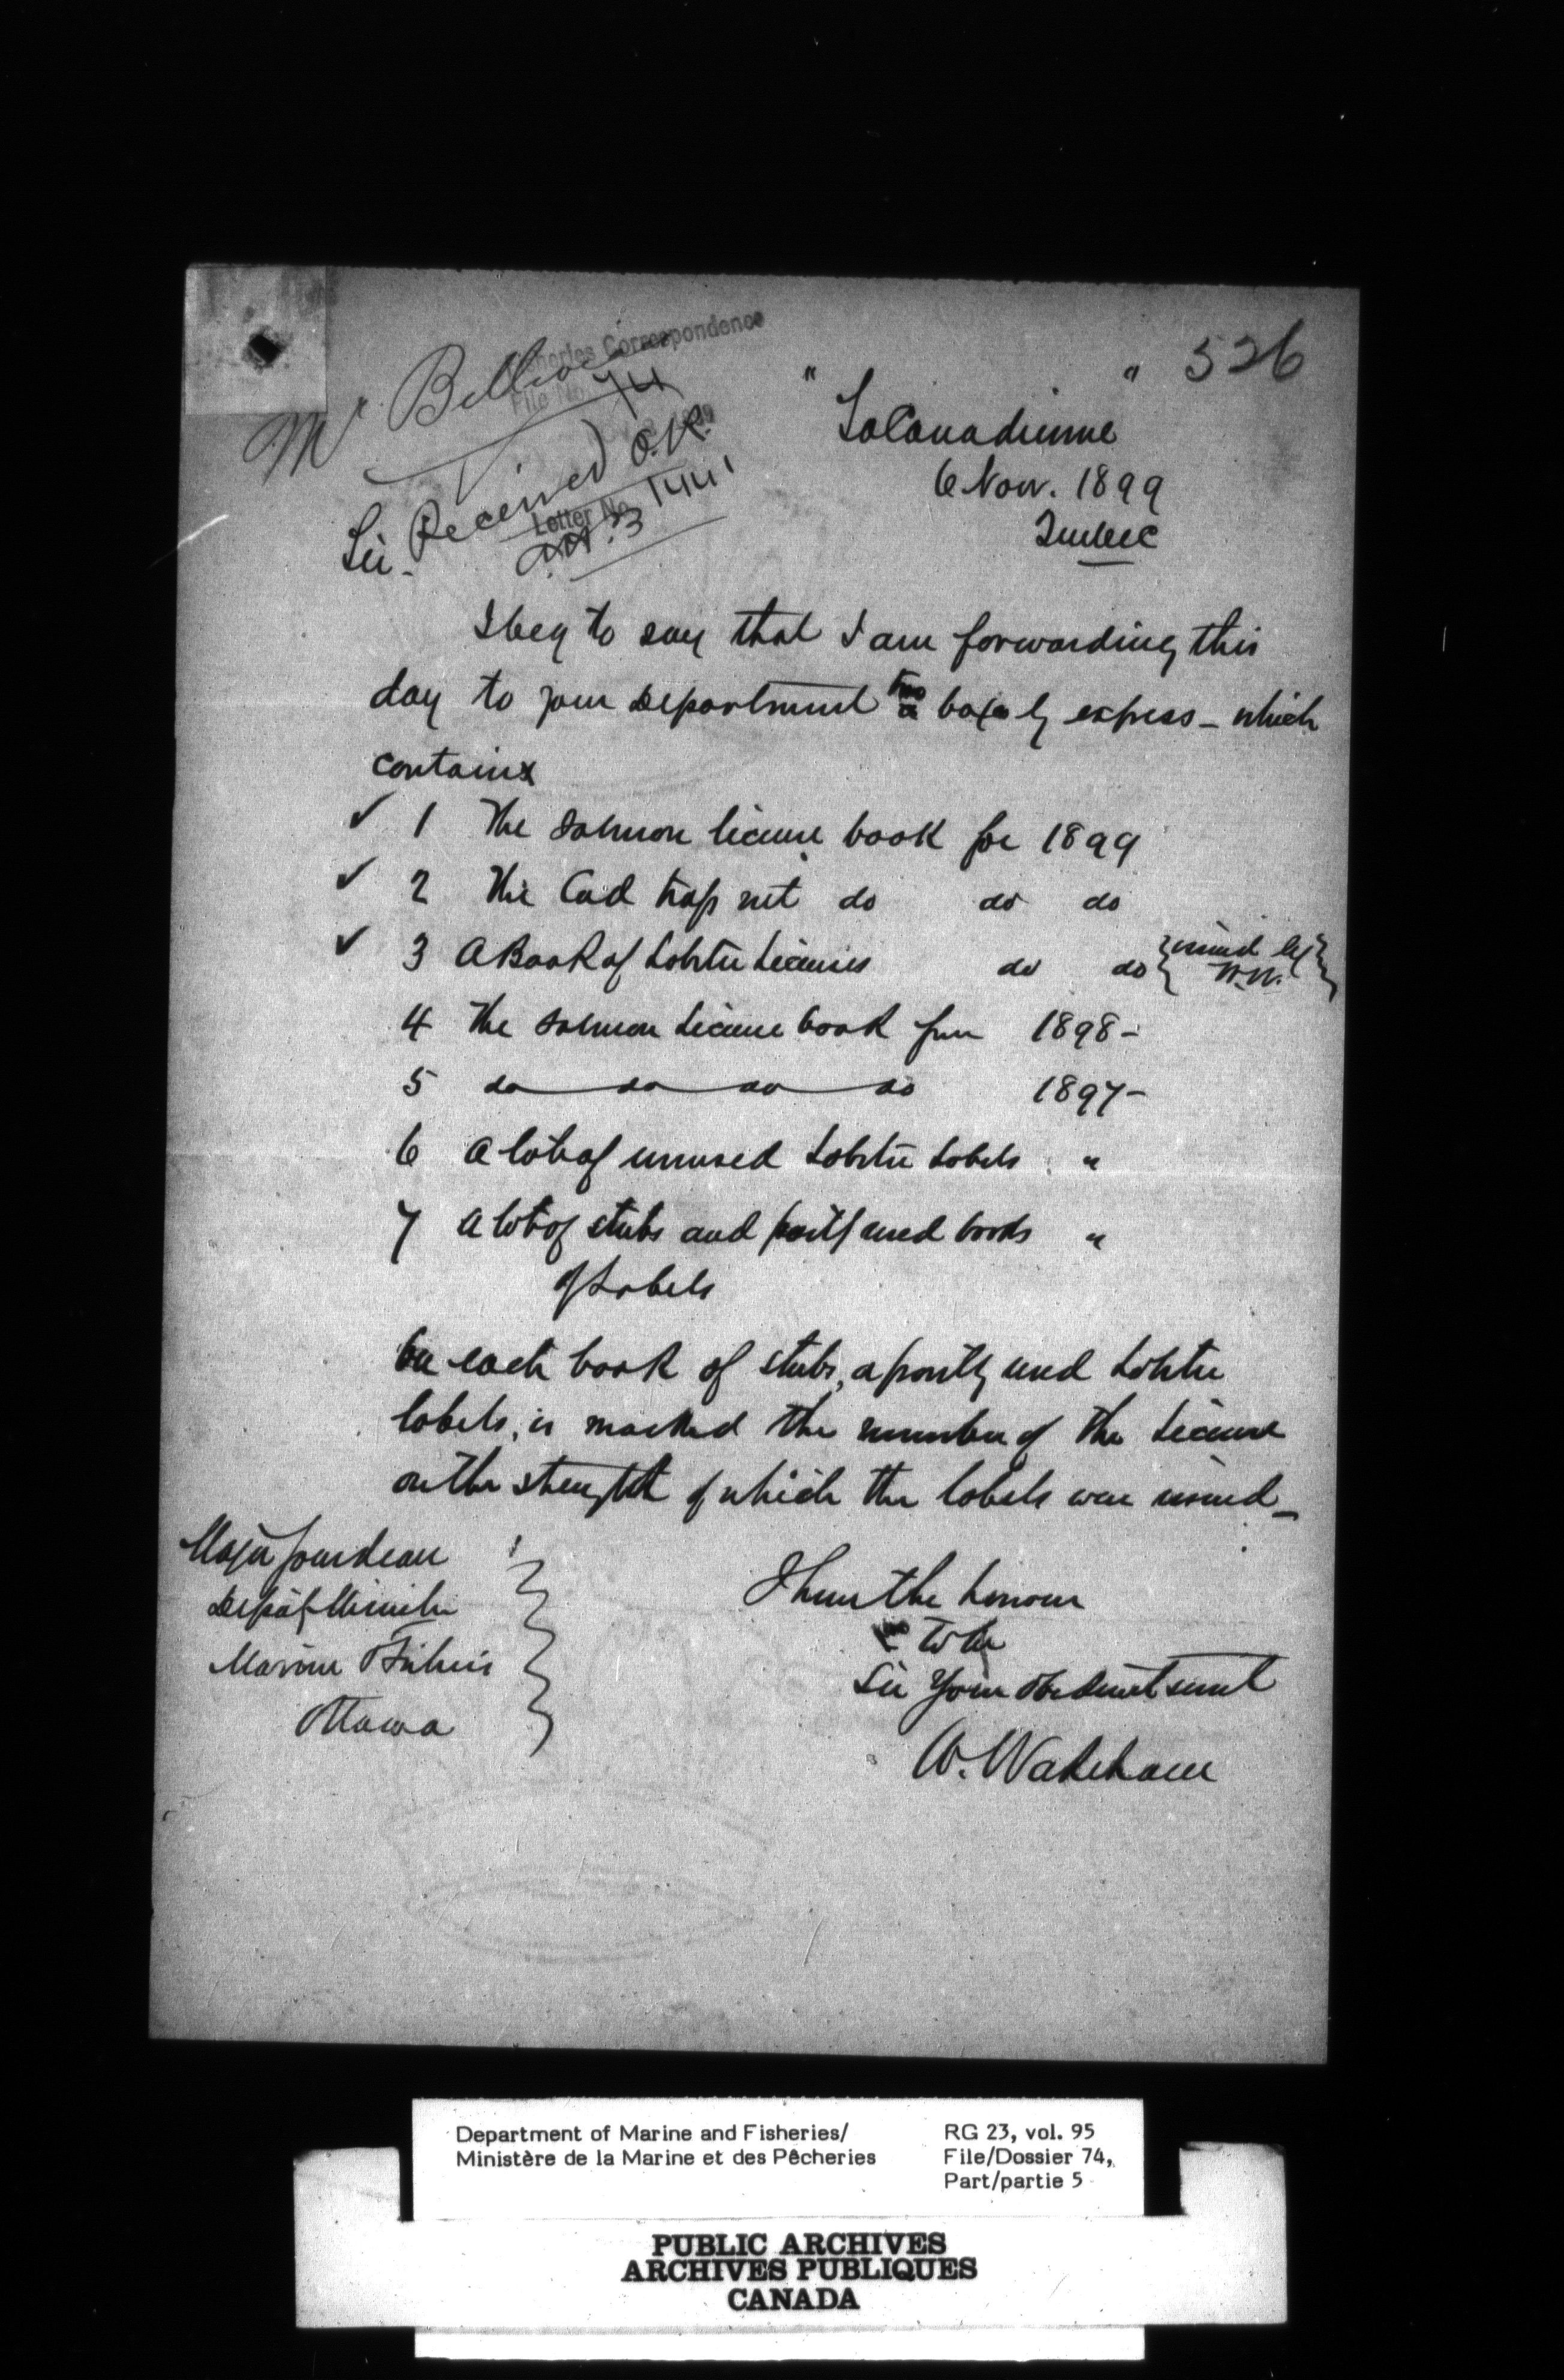 526
Mr Bellive
Fisheries Correspondence
File No. 74
Received O.K.
Letter No. 1441
"LaCanadienne"
6 Nov. 1899
Quebec
Sir.
I beg to say that I am forwarding this
day to your Department two boxes by express - which
contain
✓ 1 The Salmon license book for 1899
✓ 2 The Cod trap net do do do
✓ 3 A Book of Lobster Licenses do do {issued by
W.W.}
4 The Salmon License book for 1898-
5 do do do do 1897-
6 A lot of unused Lobster Labels "
7 A lot of stubs and partly used books "
of Labels
On each book of stubs, a partly used Lobster
labels, is marked the number of the License
on the strength of which the labels were issued -
Major Gourdeau
Deputy Minister
Marine & Fisheries
Ottawa
I have the honour
to be
Sir Your obedient servant
W. Wakeham
Department of Marine and Fisheries/
Ministère de la Marine et des Pêcheries
RG 23, vol. 95
File/Dossier 74,
Part/partie 5
PUBLIC ARCHIVES
ARCHIVES PUBLIQUES
CANADA